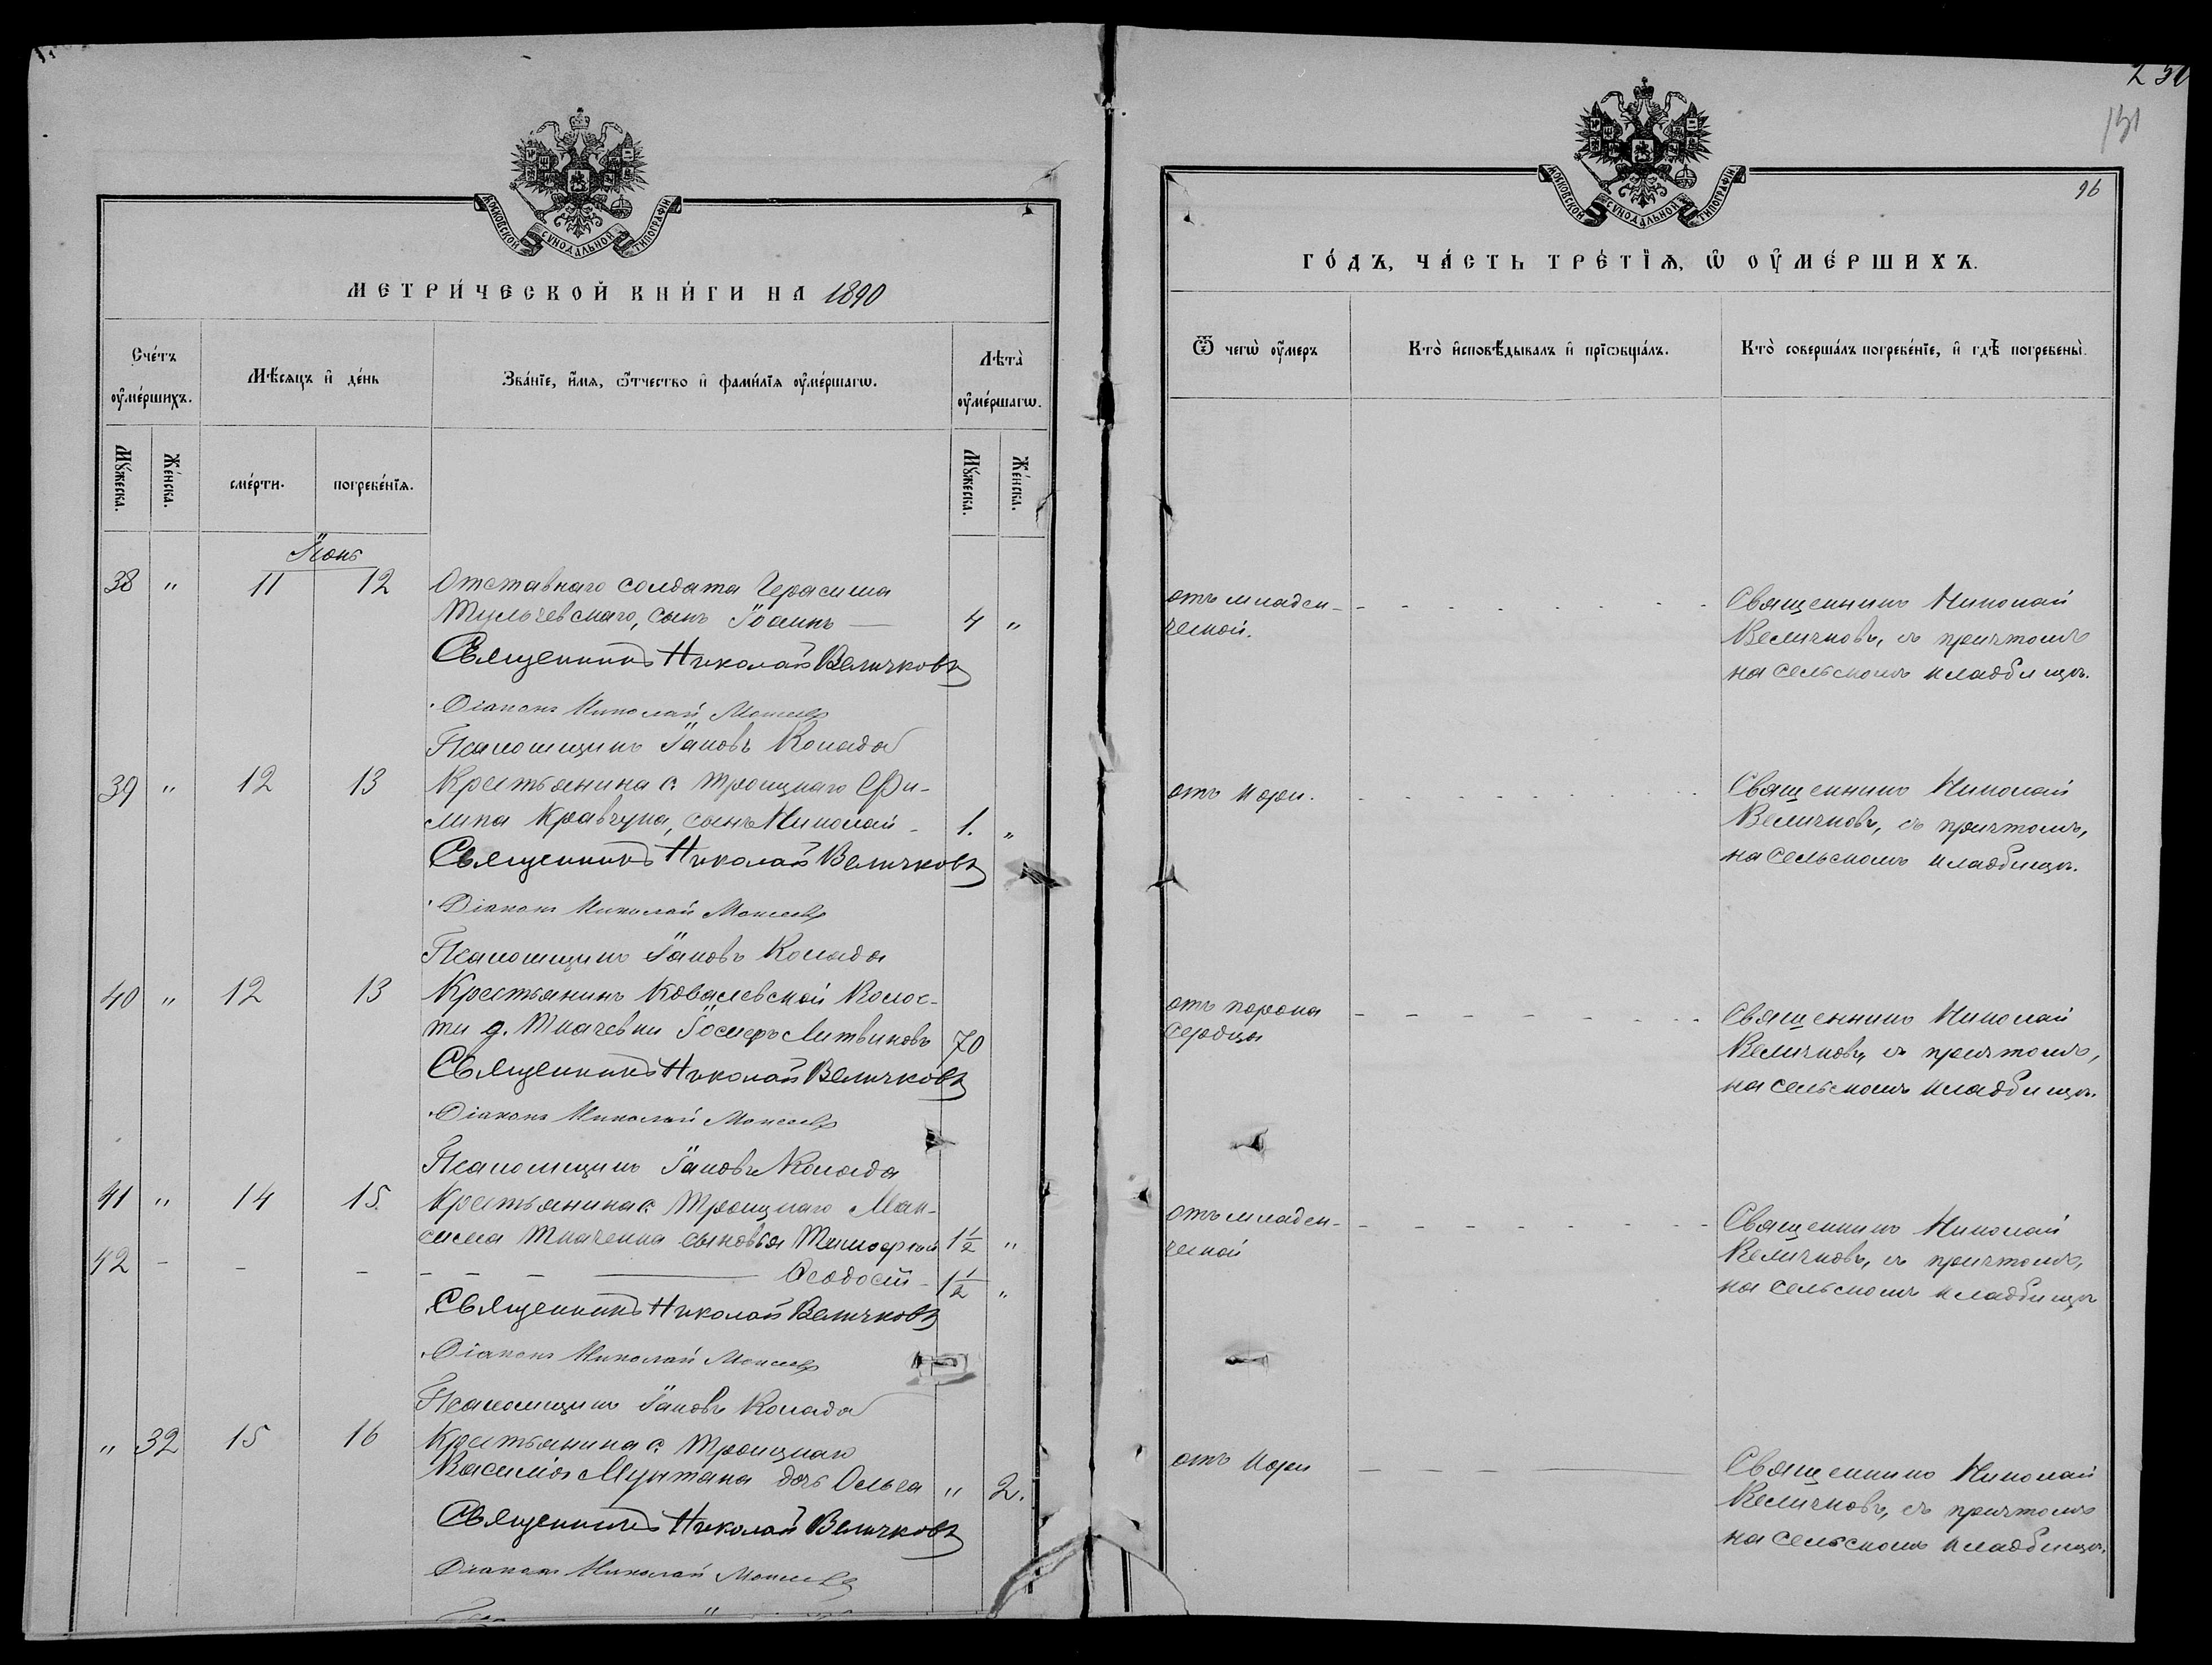 МОСКОВСКОЙ СѴНОДАЛЬНОЙ ТИПОГРАФІИ
МЕТРИ́ЧЕСКОЙ КНИ́ГИ НА 1890
Сче́тъ ᲂу҆ме́ршихъ.
Мѣ́сѧцъ и҆ де́нь
Зва́нїе, и҆́мѧ, ѻ҆́тчество и҆ фами́лїѧ ᲂу҆ме́ршагѡ.
Лѣта̀ ᲂу҆ме́ршагѡ.
Мꙋ́жеска.
Же́нска.
сме́рти.
погребе́нїѧ.
Мꙋ́жеска.
Же́нска.
Іюнь
38 " 11 12 Отставнаго солдата Герасима
Тульчевскаго, сынъ Іоаннъ — 4 "
Священникъ Николай Величковъ
Діаконъ Николай Моисеевъ
Псаломщикъ Іаковъ Колада
39 " 12 13 Крестьянина с. Троицкаго Фи-
липа Кравчука, сынъ Николай - 1. "
Священникъ Николай Величковъ
Діаконъ Николай Моисеевъ
Псаломщикъ Іаковъ Колада
40 " 12 13 Крестьянинъ Ковалевской волос-
ти д. Ткачевки Іосифъ Литвиновъ 70
Священникъ Николай Величковъ
Діаконъ Николай Моисеевъ
Псаломщикъ Іаковъ Колада
41 " 14 15. Крестьянина с. Троицкаго Мак-
сима Ткаченка сыновья Тимофей 1 1/2 "
42 - - - - - - — Ѳеодосій - 1 1/2 "
Священникъ Николай Величковъ
Діаконъ Николай Моисеевъ
Псаломщикъ Іаковъ Колада
" 32 15 16 Крестьянина с. Троицкаго
Василія Мунтана дочь Ольга " 2.
Священникъ Николай Величковъ
Діаконъ Николай Моисеевъ
250
131
96
МОСКОВСКОЙ СѴНОДАЛЬНОЙ ТИПОГРАФІИ
ГО́ДЪ, ЧА́СТЬ ТРЕ́ТЇѦ, Ѡ҆ ОУ҆МЕ́РШИХЪ.
Ѿ чегѡ̀ ᲂу҆́меръ
Кто̀ и҆сповѣ́дывалъ и҆ прїѡбща́лъ.
Кто̀ соверша́лъ погребе́нїе, и҆ гдѣ̀ погребены̀.
отъ младен-
ческой.
Священникъ Николай
Величковъ, съ причтомъ
на сельскомъ кладбищѣ.
отъ кори.
Священникъ Николай
Величковъ, съ причтомъ,
на сельскомъ кладбищѣ.
отъ порока
сердца
Священникъ Николай
Величковъ, съ причтомъ,
на сельскомъ кладбищѣ.
отъ младен-
ческой
Священникъ Николай
Величковъ, съ причтомъ,
на сельскомъ кладбищѣ
отъ кори
Священникъ Николай
Величковъ, съ причтомъ
на сельскомъ кладбищѣ.